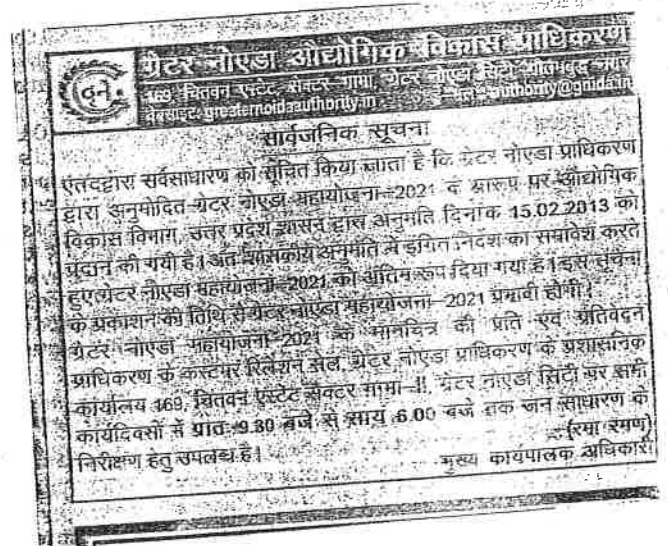 ग्रेटर नोएडा औद्योगिक विकास प्राधिकरण
169, चितवन एस्टेट, सेक्टर-गामा, ग्रेटर नोएडा सिटी, गौतमबुद्ध नगर
वेबसाइट: greaternoidaauthority.in authority@gnida.in
सार्वजनिक सूचना
एतदद्वारा सर्वसाधारण को सूचित किया जाता है कि ग्रेटर नोएडा प्राधिकरण
द्वारा अनुमोदित ग्रेटर नोएडा महायोजना-2021 के प्रारूप पर औद्योगिक
विकास विभाग, उत्तर प्रदेश शासन द्वारा अनुमति दिनांक 15.02.2013 को
प्रदान की गयी है। अतः शासकीय अनुमति में इंगित निर्देश का समावेश करते
हुए ग्रेटर नोएडा महायोजना-2021 को अंतिम रूप दिया गया है। इस सूचना
के प्रकाशन की तिथि से ग्रेटर नोएडा महायोजना-2021 प्रभावी होगी।
ग्रेटर नोएडा महायोजना-2021 के मानचित्र की प्रति एवं प्रतिवेदन
प्राधिकरण के कस्टमर रिलेशन सेल, ग्रेटर नोएडा प्राधिकरण के प्रशासनिक
कार्यालय 169, चितवन एस्टेट सेक्टर गामा-II, ग्रेटर नोएडा सिटी पर सभी
कार्यदिवसों में प्रातः 9.30 बजे से सायं 6.00 बजे तक जन साधारण के
निरीक्षण हेतु उपलब्ध है।
(रमा रमण)
मुख्य कार्यपालक अधिकारी